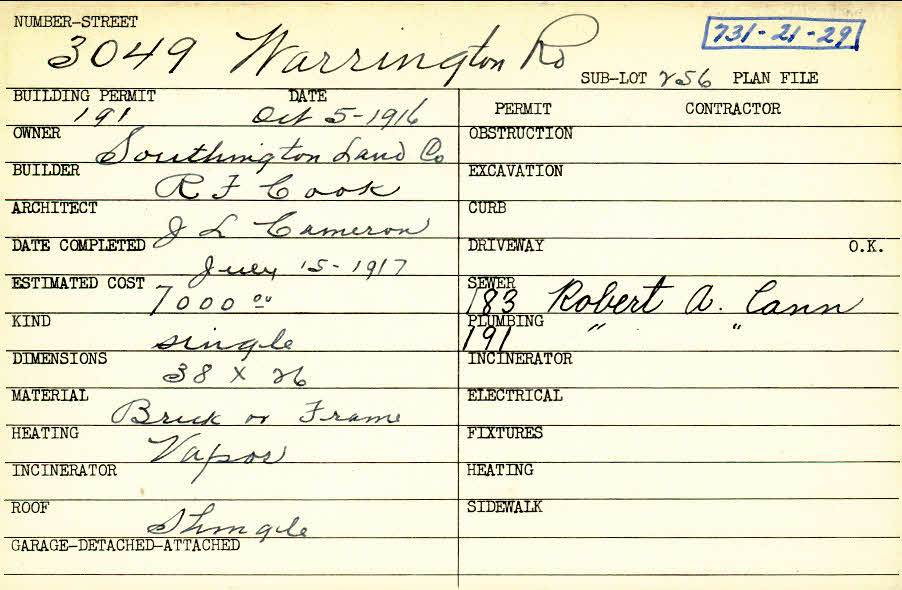 NUMBER-STREET
3049 Warrington Rd
731-21-29
SUB-LOT 256 PLAN FILE
BUILDING PERMIT DATE
191 Oct 5-1916
OWNER
Southington Land Co
BUILDER
R F Cook
ARCHITECT
J L Cameron
DATE COMPLETED
July 15-1917
ESTIMATED COST
7000 00
KIND
single
DIMENSIONS
38 X 26
MATERIAL
Brick or Frame
HEATING
Vapor
INCINERATOR
ROOF
Shingle
GARAGE-DETACHED-ATTACHED
PERMIT CONTRACTOR
OBSTRUCTION
EXCAVATION
CURB
DRIVEWAY O.K.
SEWER
183 Robert A. Cann
PLUMBING
191 " "
INCINERATOR
ELECTRICAL
FIXTURES
HEATING
SIDEWALK